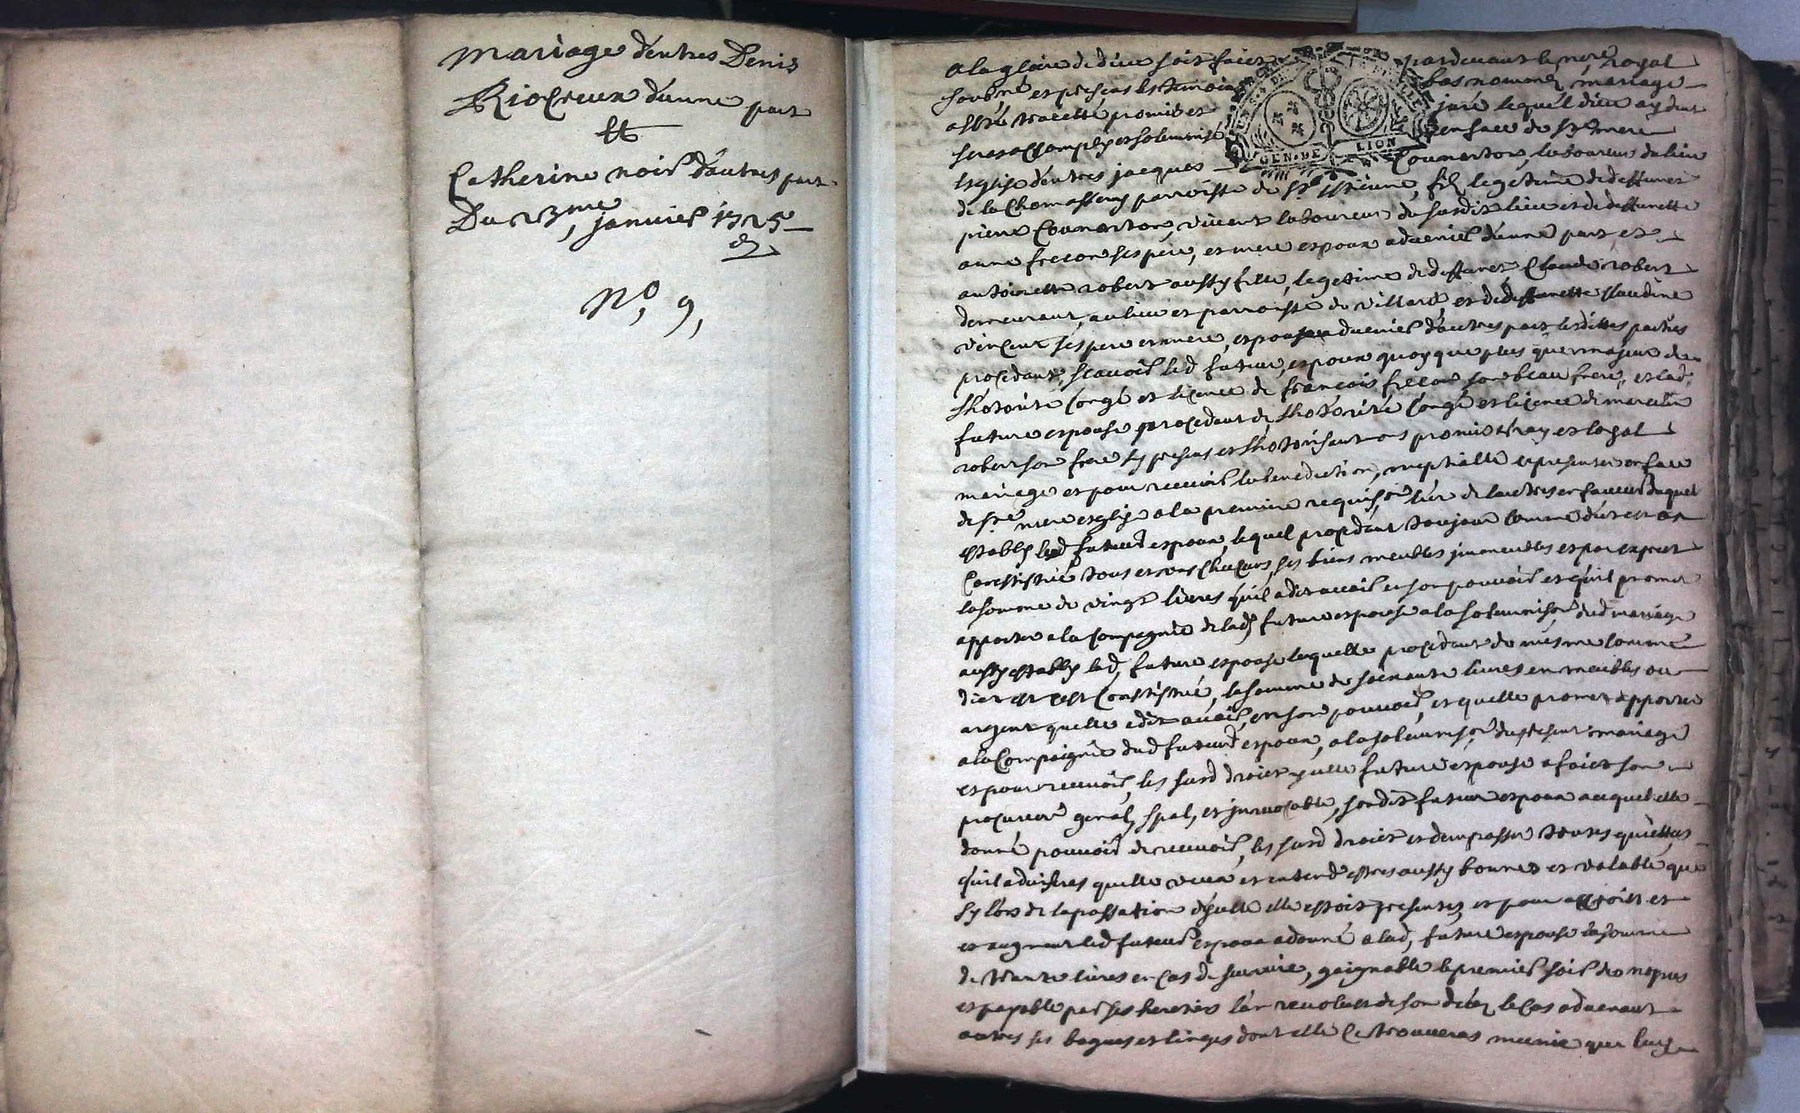 Mariage d'entres Denis
Riocreux d'unne part
Et
Catherine noir d'autres part
Du 23me janvier 1725
No, 9,
A la gloire de dieu soit faict pardevant le nore royal
soubné et presens les temoins bas nommés mariage
a esté traicté promis et juré lequel dieu aydant
seres accomply et solemnisé en face de ste mere
Esglise d'entres jacques Couuarton, laboureur du lieu
de la Chomassery parroisse de St Estienne, fils legetime de deffunct
pierre Couuarton, vivant laboureur du susdit lieu et de deffuncte
anne frecon ses père, et mere espoux advenir d'unne part et
antoinette robert aussy fille, legetime de deffunct Claude robert
demeurant, au lieu et parroisse de villard, et de deffuncte Claudine
vincent ses pere et mere, espouse advenir d'autres part lesdittes parties
procedant, scauoir led futur, espoux quoyque plus que majeur de
l'hotorité congé et licence de francois frecon son beau frere, et lad
future espouse procedant de l'hotorité congé et licence de marcelin
robert son frere sy presens et l'hotorisant ont promis vray et loyal
mariage et pour recevoir la benediction, nuptialle se presenter en face
de ste mere esglise a la premiere requision l'un de l'autres en faveur duquel
estably led futeur espoux, lequel procedant toujour comme dict est
constistué tous et uns chacuns, ses biens meubles jmmeubles et par exprest
la somme de vingt livres qu'il a dit avoir en son pouvoir et qu'il promet
apporter a la compagnie de lad future espouse a la solemnison dud mariage
aussy estably lad, future espouse laquelle procedant de mesme comme
dict est c'est constistué, la somme de soixante livres en meubles ou
argent quelle a dit avoir, en son pouvoir, et quelle promet apporter
a la compaignie dud futeur espoux, a la solemnison du present mariage
et pour recevoir, les susd droict ycelle future espouse a faict son
procureur genal, spal, et jrrevocable, son dit futeur espoux auquel elle
donne pouvoir de recevoir, les susd droict et d'en passer toutes quittes
qu'il adviseras quelle veux et entend estres aussy bonnes et valable que
sy lors de la passation d'ycelle elle estoit presentes, et pour
et augment led futeur espoux a donné a lad, future espouse la somme
de trente livres en cas de survie, gaignable le premier soir de nopces
et payable par ses heretiers l'an revolut de son déces le cas advenant
outres ses bagues et linges dont elle ce trouveras munie que luy
GEN·DE LION